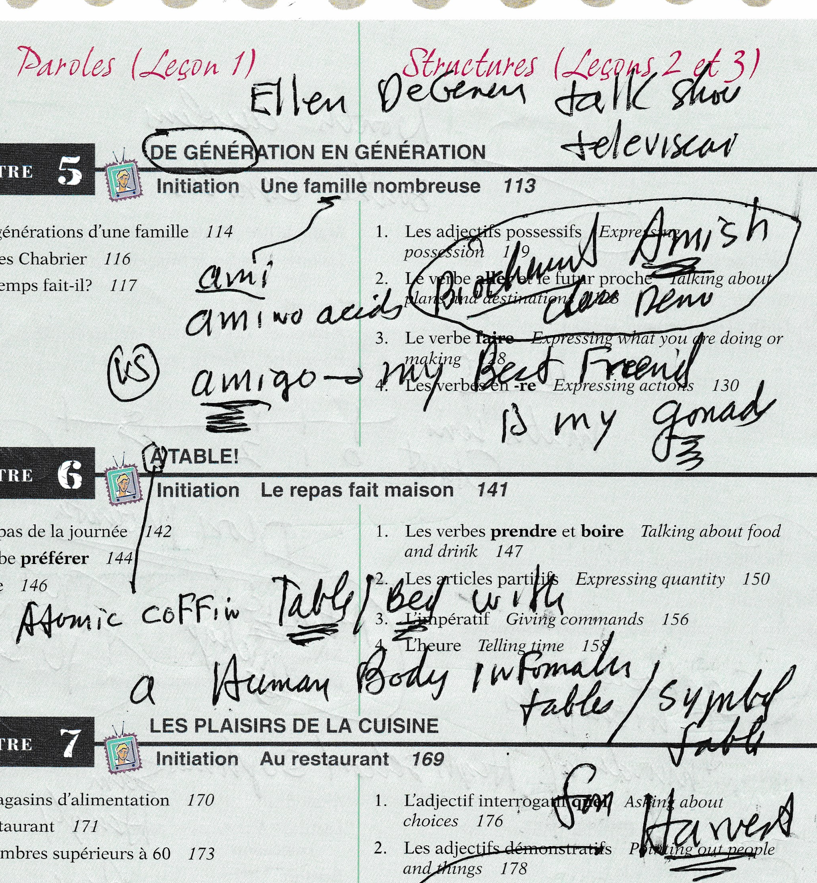 Paroles (Leçon 1)
Structures (Leçons 2 et 3)
Ellen DeGeneres talk show
TRE 5 DE GÉNÉRATION EN GÉNÉRATION
Initiation Une famille nombreuse 113
générations d'une famille 114
es Chabrier 116
emps fait-il? 117
1. Les adjectifs possessifs Expressing
possession 119
2. Le verbe aller et le futur proche Talking about
plans and destinations
3. Le verbe faire Expressing what you are doing or
making 128
4. Les verbes en -re Expressing actions 130
Amish
ami
amino acids
VS amigo → my Best Friend
is my gonads
TRE 6 A TABLE!
Initiation Le repas fait maison 141
pas de la journée 142
be préférer 144
e 146
1. Les verbes prendre et boire Talking about food
and drink 147
2. Les articles partitifs Expressing quantity 150
3. L'impératif Giving commands 156
4. L'heure Telling time 158
Atomic coffin Table/Bed with
a Human Body
tables / symbol
table
TRE 7 LES PLAISIRS DE LA CUISINE
Initiation Au restaurant 169
agasins d'alimentation 170
taurant 171
mbres supérieurs à 60 173
1. L'adjectif interrogatif quel Asking about
choices 176
2. Les adjectifs démonstratifs Pointing out people
and things 178
for Harvest